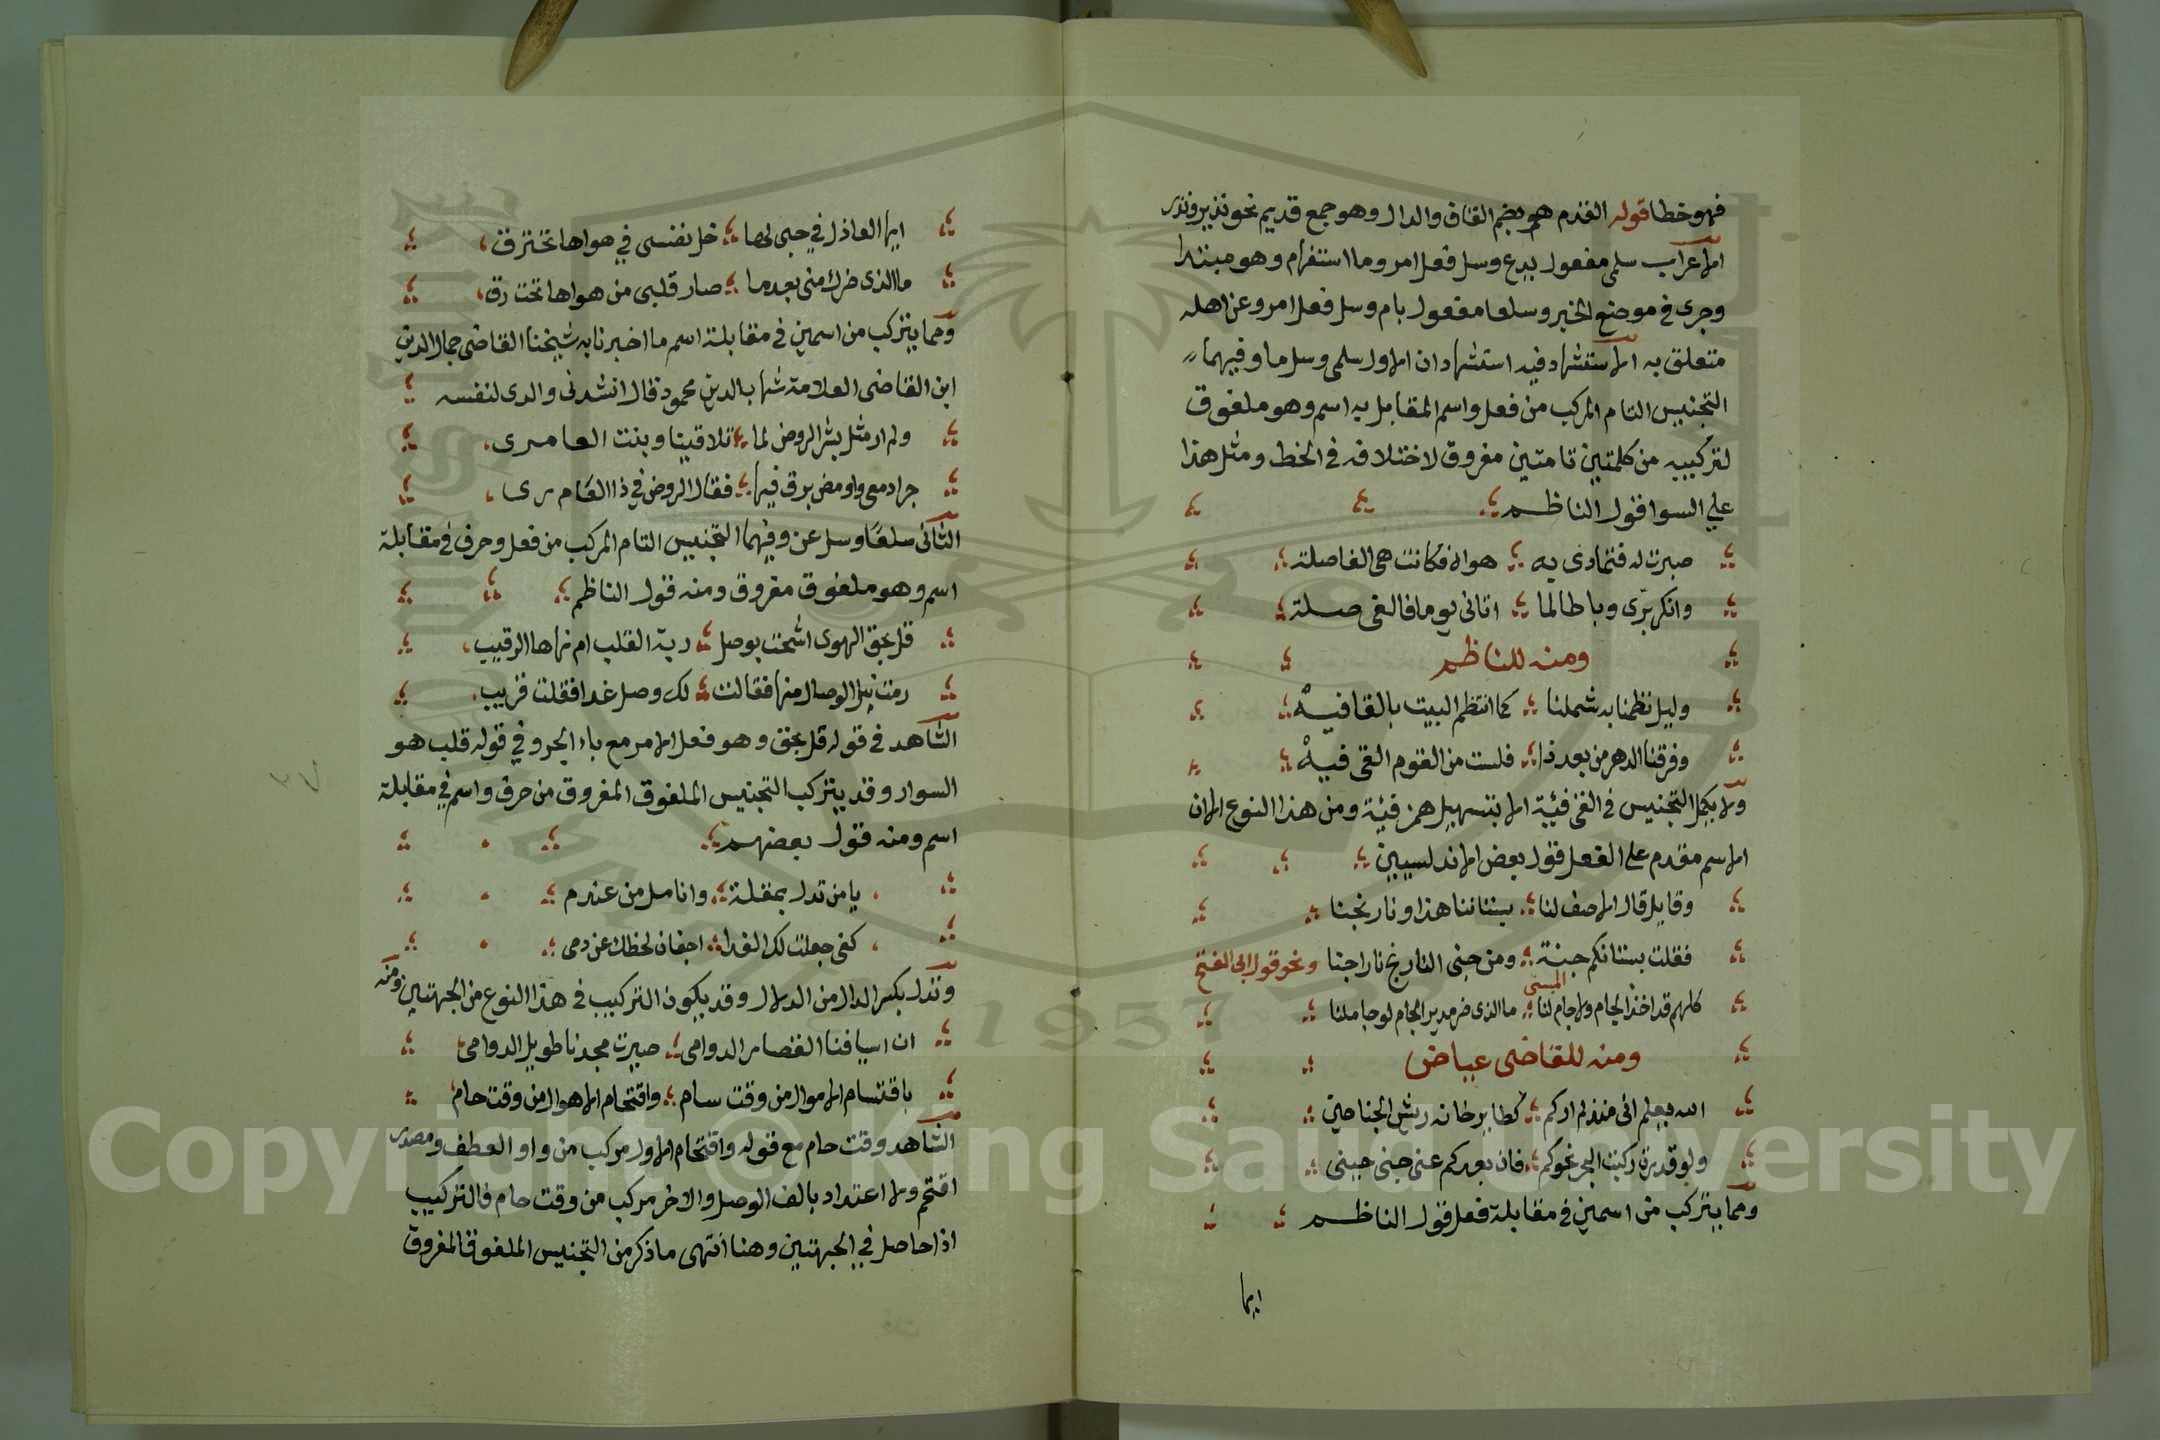 فهو خطا قوله القدم هو بضم القاف والدال وهو جمع قديم نحو نذير ونذر
الاعراب سلمى مفعول بدع وسل فعل امر وما استفهام وهو مبتدا
وجرى في موضع الخبر وسلعا مفعول بام وسل فعل امر وعن اهله
متعلق به الاستشهاد فيه استشهادان الاول سلمى وسل ما وفيهما
التجنيس التام المركب من فعل واسم المقابل به اسم وهو ملفوق
لتركيبه من كلمتين تامتين مفروق لاختلافه في الخط ومثل هذا
علي السوا قول الناظم
صبرت له فتمادى به هواه فكانت هي الفاصلة
وانكر برى وباطالما اتانى يوما فالفى صلة
ومنه للناظم
وليل نظمنا به شملنا كما انتظم البيت بالقافيه
وفرقنا الدهر من بعد ذا فلست من القوم القى فيه
ولا يكمل التجنيس في الغى فيئة الا بتسهيل همز فيئة ومن هذا النوع الا ان
الاسم مقدم على الفعل قول بعض الاندلسيين
وقايل قال الا صف لنا بستاننا هذا ونارنجنا
فقلت بستانكم جنة ومن جنى النارنج نارا جنا ونحو قول ابى الفتح
البستى
كلهم قد اخذ الجام ولا جام لنا ما الذى ضر مدير الجام لو جاملنا
ومنه للقاضى عياض
الله يعلم انى منذ لم اركم كطاير خانه ريش الجناحين
ولو قدرت ركبت البحر نحوكم فان بعدكم عنى جنى حينى
ومما يتركب من اسمين في مقابلة فعل قول الناظم
ايها
ايها العاذل في حبى لها خل نفسى في هواها تحترق
ما الذى ضرك منى بعدما صار قلبى من هواها تحت رق
ومما يتركب من اسمين في مقابلة اسم ما اخبرنا به شيخنا القاضى جمال الدين
ابن القاضى العلامة شهاب الدين محمود قال انشدنى والدى لنفسه
ولم ار مثل بشر الروض لما تلاقينا وبنت العامرى
جرا دمعى واومض برق فيها فقال الروض في ذا العام رى
الثانى سلعا وسل عن وفيهما التجنيس التام المركب من فعل وحرف في مقابلة
اسم وهو ملفوق مفروق ومنه قول الناظم
قل بحق الهوى اشحت بوصل ربة القلب ام نهاها الرقيب
رمت نيل الوصال منها فقالت لك وصل غدا فقلت قريب
الشاهد في قوله قل بحق وهو فعل الامر مع باء الجر وفي قوله قلب هو
السوار وقد يتركب التجنيس الملفوق المفروق من حرف واسم في مقابلة
اسم ومنه قول بعضهم
يا من تدل بمقلة وانامل من عندم
كفى جعلت لك الفدا اجفان لحظك عن دمى
وتدل بكسر الدال من الدلال وقد يكون التركيب في هذا النوع من الجهتين ومنه
ان اسيافنا القصار الدوامى صيرت مجدنا طويل الدوامى
باقتسام الاموال من وقت سام واقتحام الاهوال من وقت حام
الشاهد وقت حام مع قوله واقتحام الاول مركب من واو العطف ومصدر
اقتحم ولا اعتداد بالف الوصل والاخر مركب من وقت حام فالتركيب
اذا حاصل في الجهتين وهنا انتهى ما ذكر من التجنيس الملفوق المفروق
1957
Copyright © King Saud University